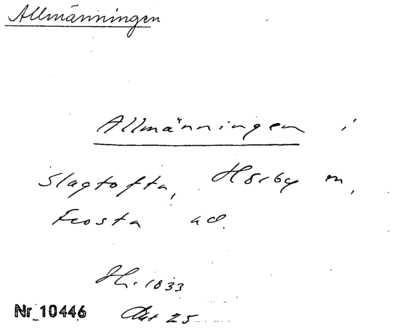 Allmänningen
Allmänningen i
Slagtofta, Hörby sn,
Frosta hd.
Hs. 1033
Nr 10446
25